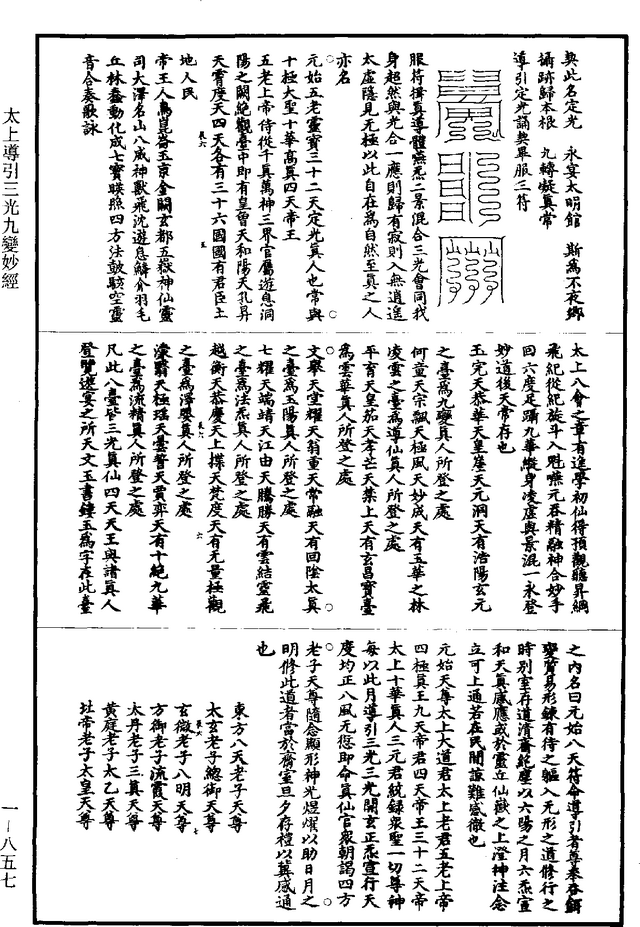 太上導引三光九變妙經
契此名定光　永宴太明館　斯為不夜鄉
攝跡歸本根　九轉凝真常
導引定光誦契畢服三符
服符攝真導體嚥炁二景混合三光會同我
身超然與光合一應則歸有寂則入無逍遙
太虛隱見无極以此自在為自然至真之人
亦名
元始五老靈寶三十二天定光真人也常與
十極大聖十華高真四天帝王
五老上帝侍從千真萬神三界官屬遊息洞
陽之闕絕觀臺中即有皇曾天和陽天孔昇
天霄度天四天各有三十六國國有君臣土
地人民
帝王人鳥崑崙玉京金闕玄都五嶽神仙靈
司大澤名山八威神獸飛沈遊息鱗介羽毛
丘林蠢動化成七寶暎照四方法鼓駭空靈
音合奏歌詠
太上八會之章有進學初仙得預觀聽昇綱
飛紀從紀旋斗入魁嚥元吞精融神合妙手
回六度足躡九華縱身凌虛與景混一永登
妙道後天常存也
玉完天恭華天皇崖天元洞天有浩陽玄元
之臺為九變真人所登之處
何童天宗飄天極風天妙成天有玉華之林
凌雲之臺為導仙真人所登之處
平育天皇茄天孝芒天禁上天有玄昌寶臺
為雲華真人所登之處
文舉天堂耀天翁重天常融天有回陰太真
之臺為玉陽真人所登之處
七耀天端靖天江由天騰勝天有雲結靈飛
之臺為法炁真人所登之處
越衡天恭慶天上揲天梵度天有无量極觀
之臺為澤嬰真人所登之處
濛翳天極瑤天曇誓天賈奕天有十絕九華
之臺為流精真人所登之處
凡此八臺皆三光真仙四天天王與諸真人
登覽遊宴之所天文玉書鏤玉為字在此臺
之內名曰元始八天符命導引者尊奉吞餌
變質易形鍊有待之軀入无形之道修行之
時別室存道清齋絕塵以六陽之月六炁宣
和天真感應或於靈丘仙嶽之上澄神注念
立可上通若在民間諒難感徹也
元始天尊太上大道君太上老君五老上帝
四極真王九天帝君四天帝王三十二天帝
太上十華真人三元君統錄眾聖一切尊神
每以此月導引三光三光開玄正炁宣行天
度均正八風无愆即命真仙官眾朝謁四方
老子天尊隨念顯形神光煜燿以助日月之
明修此道者當於齋室旦夕存禮以冀感通
也
東方八天老子天尊
太玄老子總御天尊
玄微老子八明天尊
方御老子流霞天尊
太丹老子三真天尊
黃庭老子太乙天尊
址帝老子太皇天尊
一－八五七